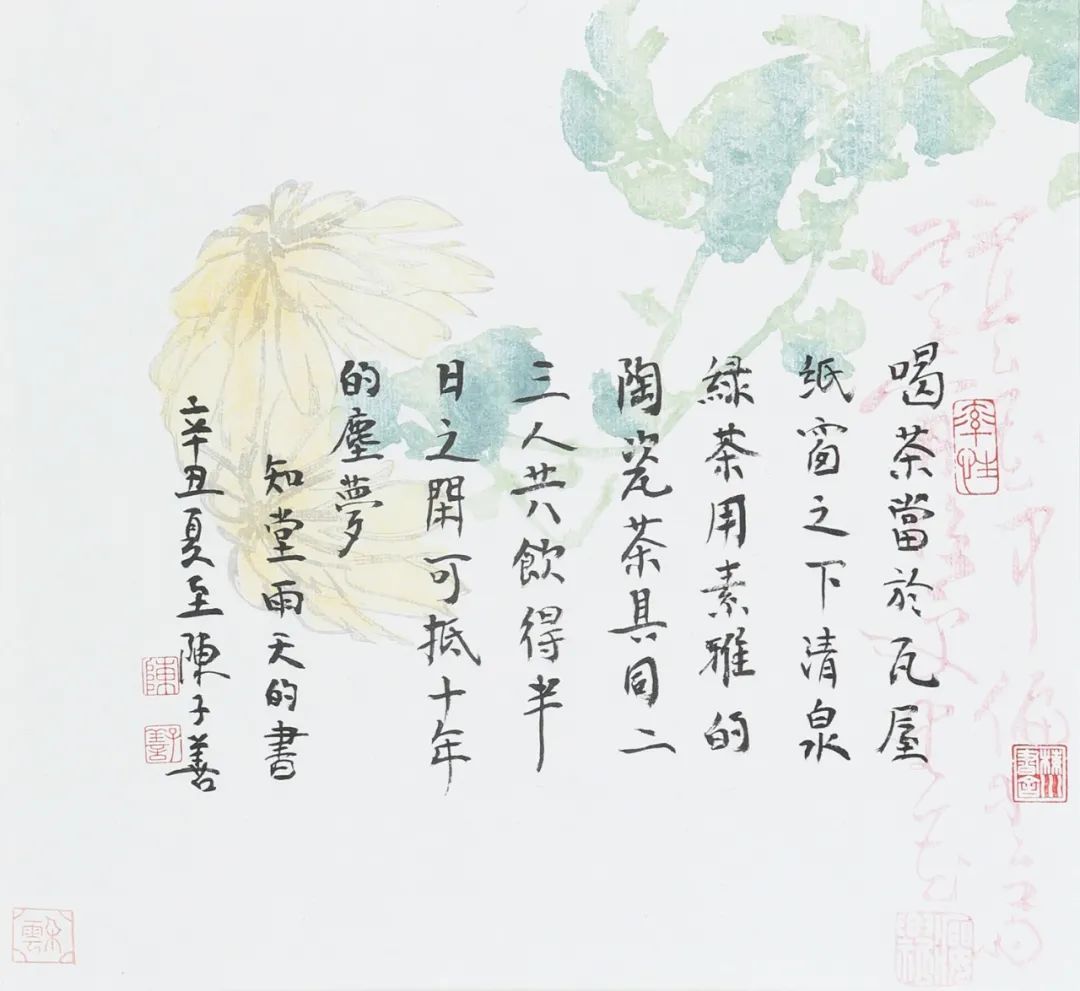 喝茶當於瓦屋
紙窗之下清泉
綠茶用素雅的
陶瓷茶具同二
三人共飲得半
日之閑可抵十年
的塵夢
知堂雨天的書
辛丑夏至陳子善
率性
陳